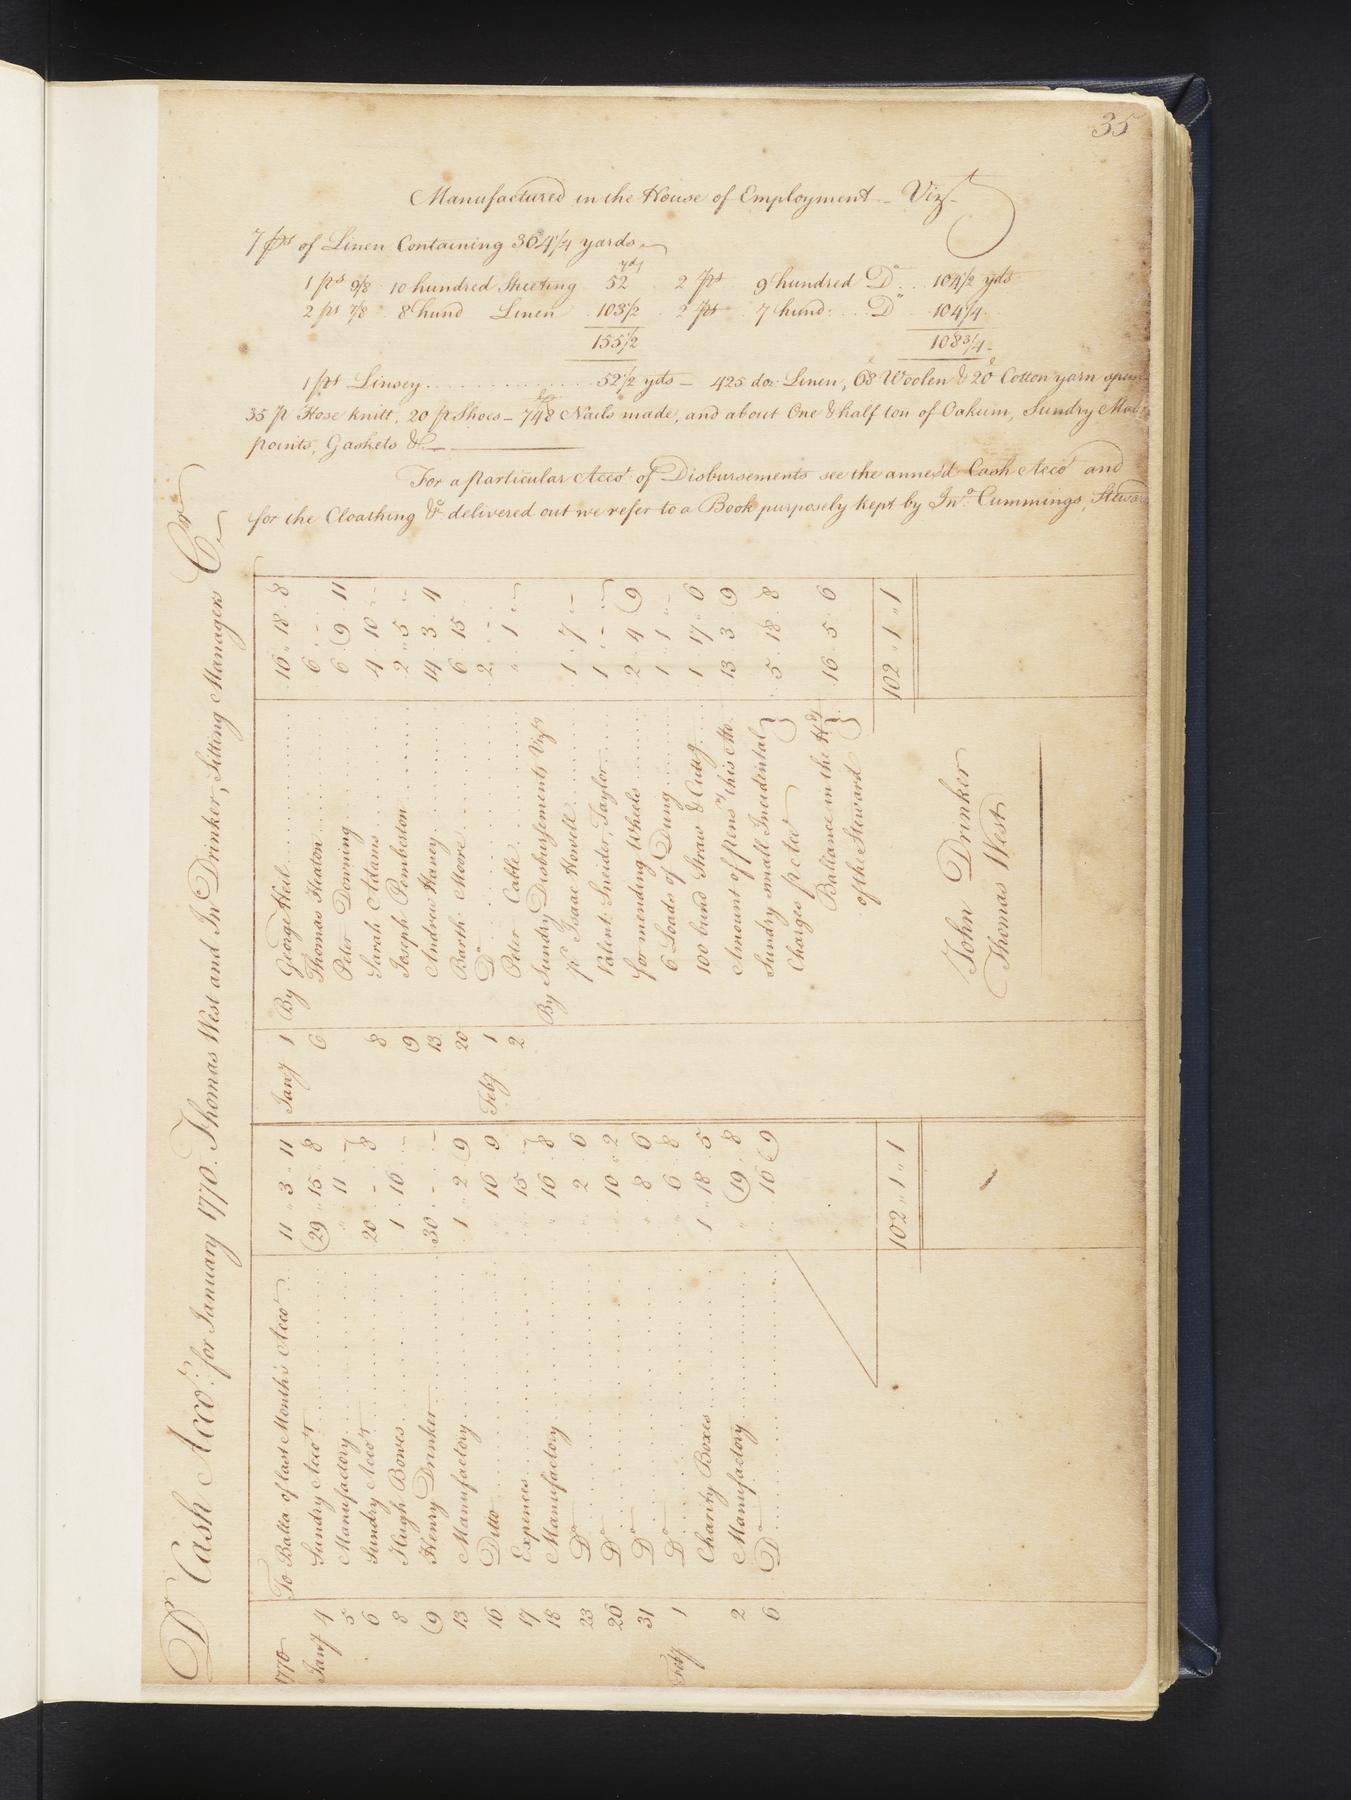 35
Manufactured in the House of Employment - Vizt.
7 ps of Linen Containing 364 1/4 yards
yds
1 ps 9/8 10 hundred Sheeting 52 2 ps 9 hundred Do 104 1/2 yds
2 ps 7/8 8 hund Linen 103 1/2 2 ps 7 hund: Do 104 1/4
155 1/2 108 3/4
1 ps Linsey 52 1/2 yds - 425 doz Linen, 68 Woolen & 20 Cotton yarn spun
35 p Hose knitt, 20 p Shoes - 748 Nails made, and about One & half ton of Oakum, Sundry
points, Gaskets &c
For a particular Acco.t of Disbursements see the annexd Cash Acco.t and
for the Cloathing &c delivered out we refer to a Book purposely kept by Jno. Cummings, Steward
Dr Cash Acco.t for January 1770. Thomas West and Jno Drinker, Sitting Managers Cr
1770 To Balla of last Month's Acco.t 11 " 3 " 11
Jany 4 Sundry Accots 29 " 15 " 8
5 Manufactory " 11 -
6 Sundry Accots 20 - 8
8 Hugh Bowes 1 " 16 -
9 Henry Drinker 30 - -
13 Manufactory 1 " 2 " 9
16 Ditto " 16 9
17 Expences " 15 -
18 Manufactory " 16 " 8
23 Do " 2 " 6
26 Do " 10 " 2
31 Do " 8 " 6
Feby 1 Do " 6 " 8
Charity Boxes 1 " 18 " 5
2 Manufactory " 19 " 8
6 Do " 16 9
102 " 1 " 1
Jany 1 By George Heil 16 " 18 " 8
6 Thomas Heaton 6 " -
Peter Downing 6 " 9 " 11
8 Sarah Adams 4 " 10 " -
9 Joseph Pemberton 2 " 5 " -
13 Andrew Haney 14 " 3 " 4
20 Barth: Moore 6 " 15
Feby 1 Do 2 " -
2 Peter Cable " 1 " -
By Sundry Disbursements Vizt
pr Isaac Howell 1 " 7 " -
Valent: Sneider, Taylor 1 " - " -
for mending Wheels 2 " 4 " 9
6 Loads of Dung 1 " 1 " -
100 bund Straw & Cuttg 1 " 17 " 6
Amount of pens this Mo 13 " 3 " 9
Sundry small Incidental
Charges 5 " 18 " 8
Ballance in the Hds
of the Steward 16 " 5 " 6
102 " 1 " 1
John Drinker
Thomas West